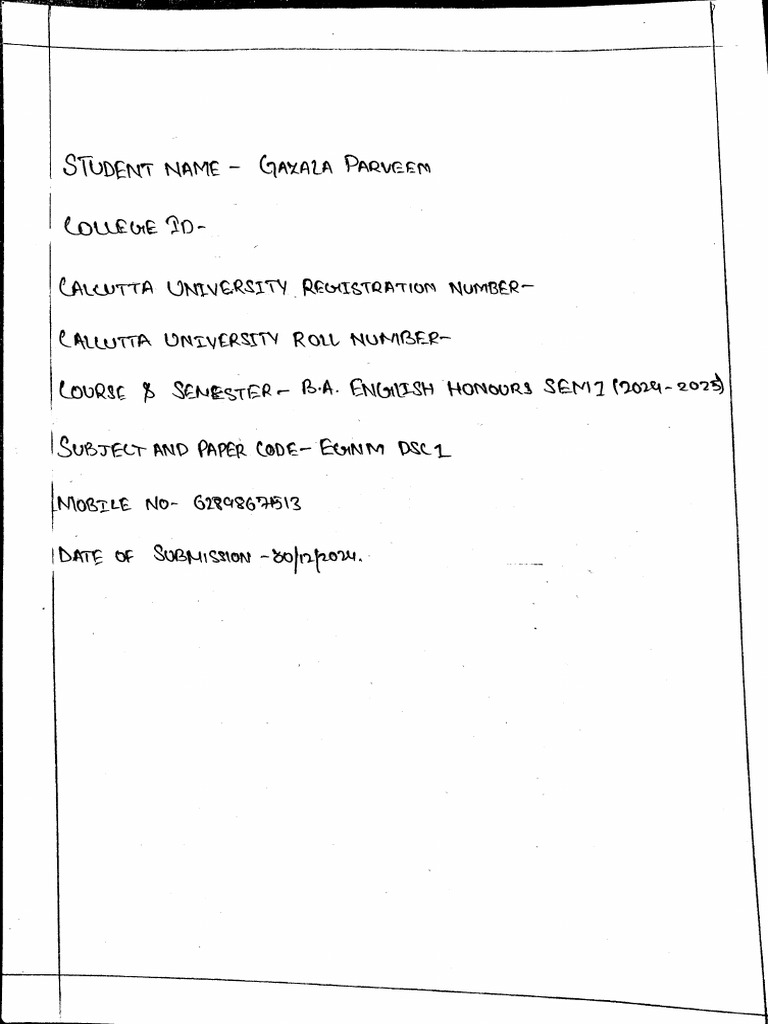 STUDENT NAME - GAZALA PARVEEM
COLLEGE ID-
CALCUTTA UNIVERSITY REGISTRATION NUMBER-
CALCUTTA UNIVERSITY ROLL NUMBER-
COURSE & SEMESTER- B.A. ENGLISH HONOURS SEM 1 (2024-2025)
SUBJECT AND PAPER CODE- EGNM DSC 1
MOBILE NO-
DATE OF SUBMISSION -30/12/2024.